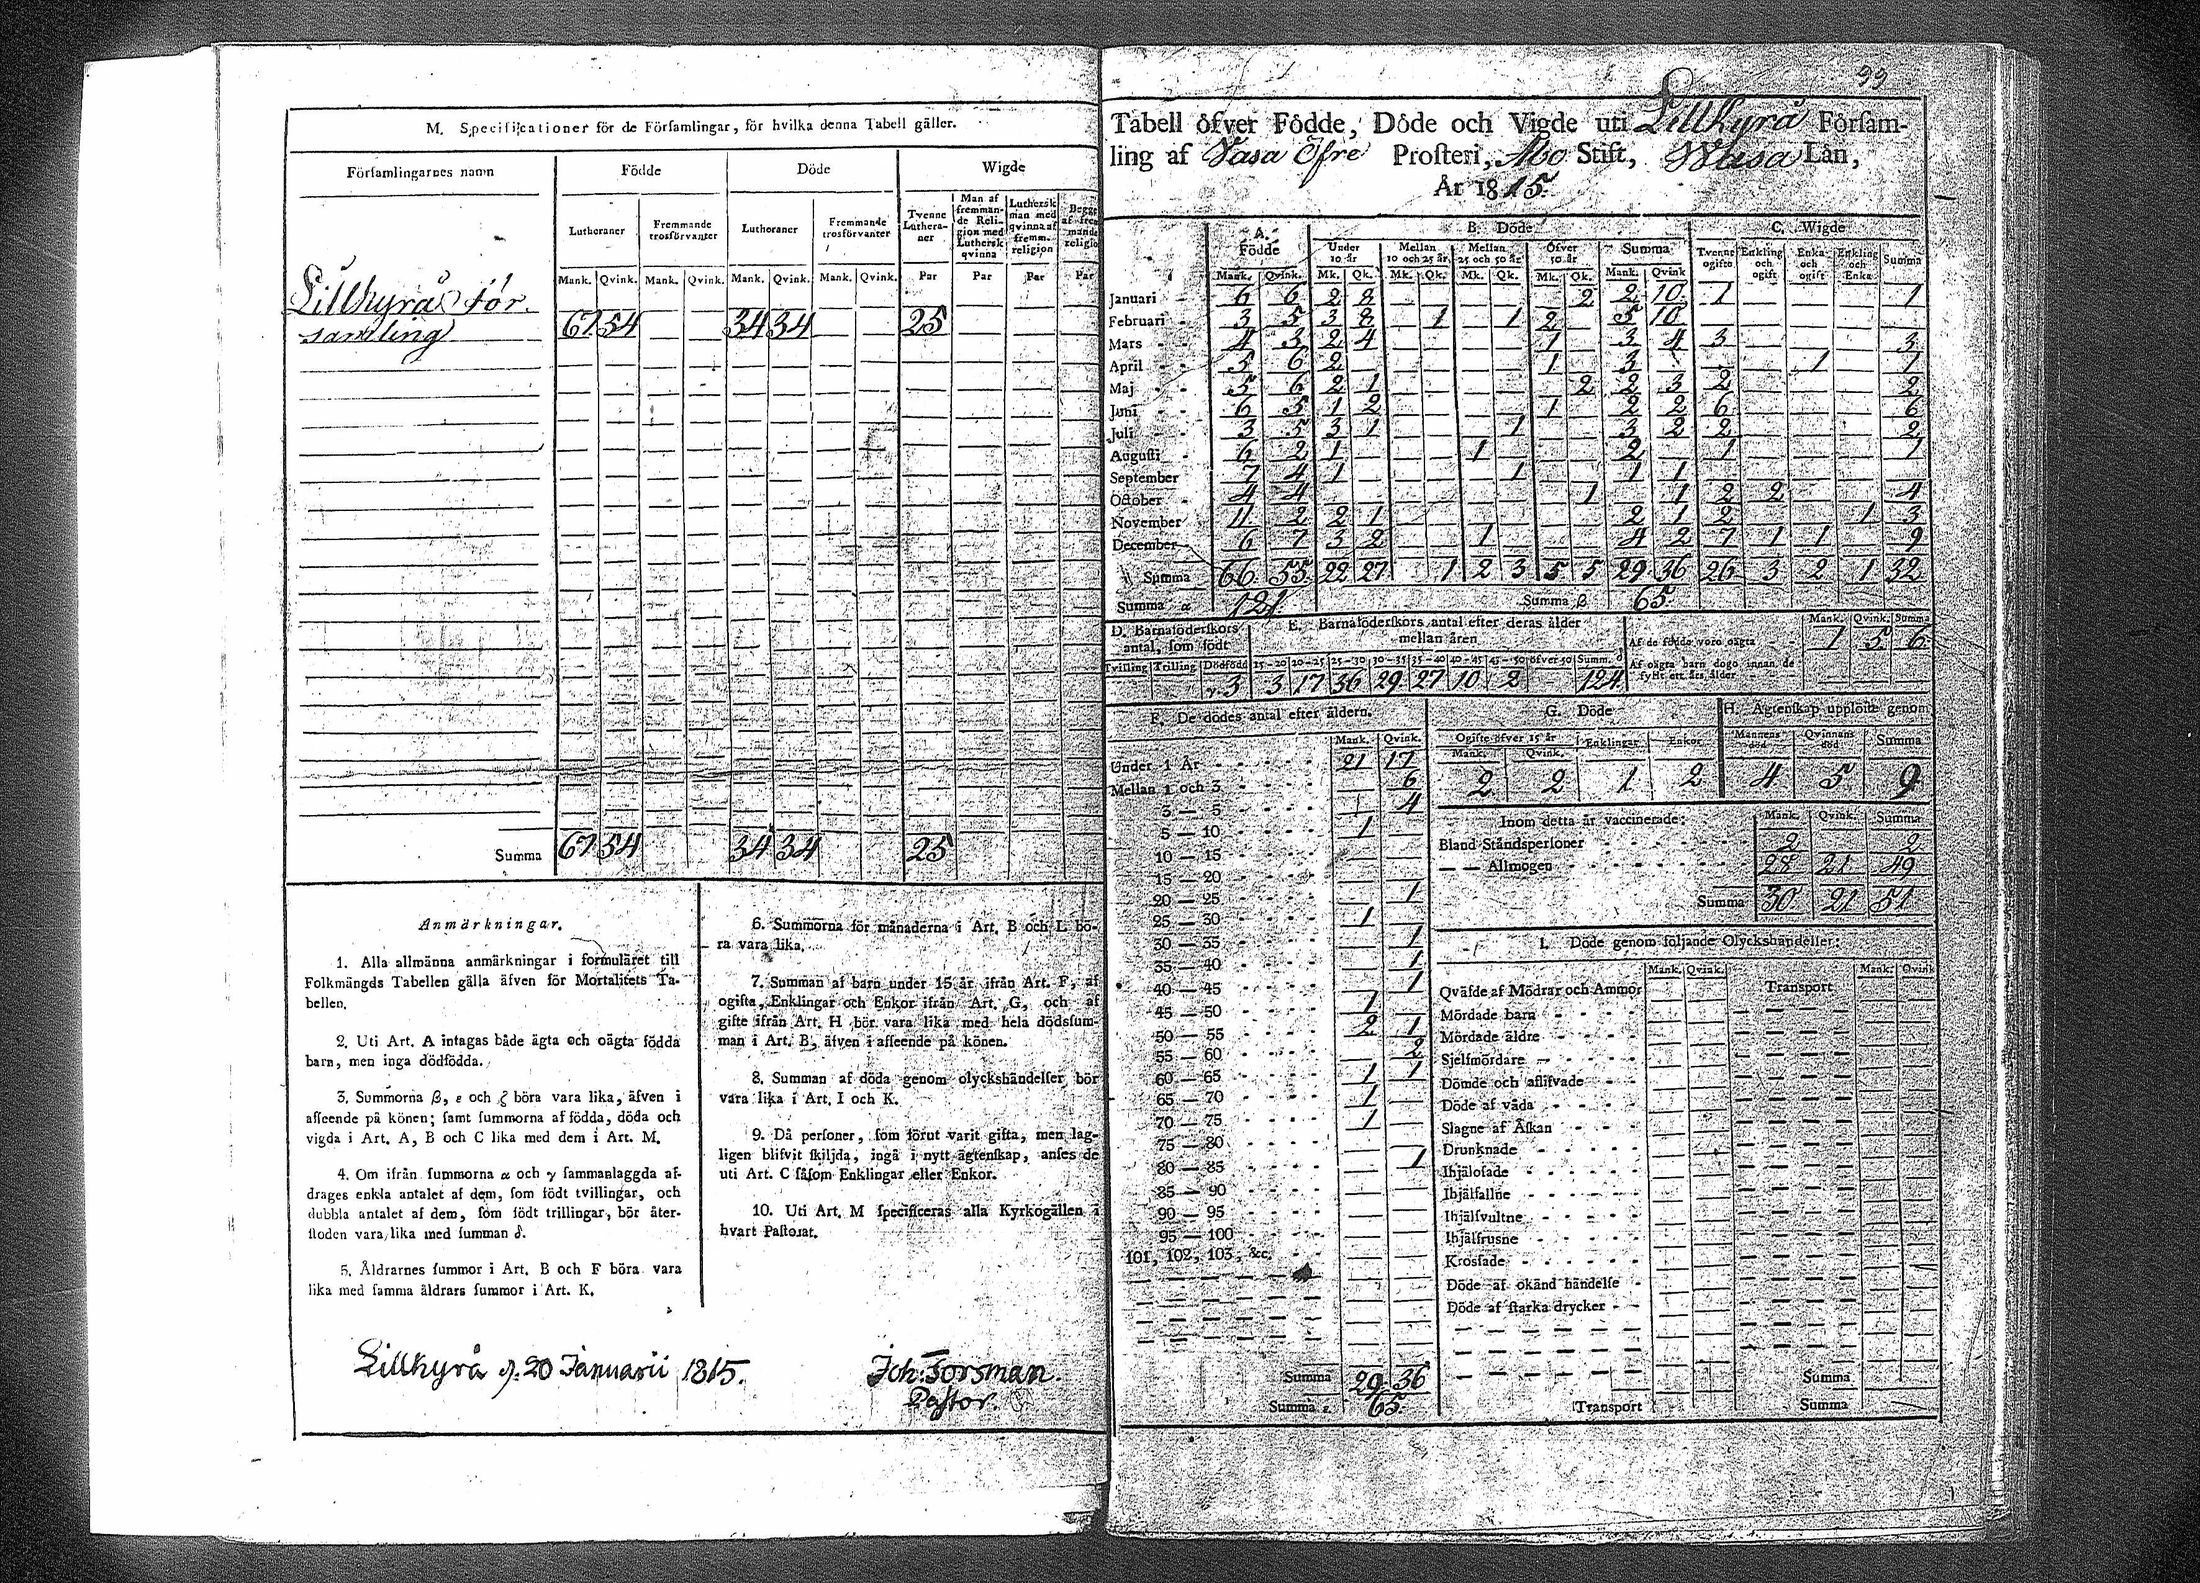 M. Specificationer för de Församlingar, för hvilka denna Tabell gäller.
Församlingarnes namn Födde Döde Wigde
Lutheraner Fremmande trosförvanter Lutheraner Fremmande trosförvanter Tvenne Lutheraner Man af fremmande Religion med Luthersk qvinna Luthersk man med qvinna af fremm. religion Begge af fremmande religio
Mank. Qvink. Mank. Qvink. Mank. Qvink. Mank. Qvink. Par Par Par Par
Lillkyrå för-
samling 67 54 34 34 25
Summa 67 54 34 34 25
Anmärkningar.
1. Alla allmänna anmärkningar i formuläret till
Folkmängds Tabellen gälla äfven för Mortalitets Ta-
bellen.
2. Uti Art. A intagas både ägta och oägta födda
barn, men inga dödfödda.
3. Summorna β, ε och ζ böra vara lika, äfven i
afſeende på könen; ſamt ſummorna af födda, döda och
vigda i Art. A, B och C lika med dem i Art. M.
4. Om ifrån ſummorna α och γ ſammanlaggda af-
drages enkla antalet af dem, ſom födt tvillingar, och
dubbla antalet af dem, ſom födt trillingar, bör åter-
ſtoden vara lika med ſumman δ.
5. Åldrarnes ſummor i Art. B och F böra vara
lika med ſamma åldrars ſummor i Art. K.
6. Summorna för månaderna i Art. B och L bö-
ra vara lika.
7. Summan af barn under 15 år ifrån Art. F, af
ogifta, Enklingar och Enkor ifrån Art. G, och af
gifte ifrån Art. H bör vara lika med hela dödsſum-
man i Art. B, äfven i afſeende på könen.
8. Summan af döda genom olyckshändelſer bör
vara lika i Art. I och K.
9. Då perſoner, ſom förut varit gifta, men lag-
ligen blifvit ſkiljda, ingå i nytt ägtenſkap, anſes de
uti Art. C ſåſom Enklingar eller Enkor.
10. Uti Art. M ſpecificeras alla Kyrkogällen i
hvart Paſtorat.
Lillkyrå d. 20 Januarii 1815.
Joh: Forsman.
Paſtor.
99
Tabell öfver Födde, Döde och Vigde uti Lillkyrå Förſam-
ling af Vasa Öfre Proſteri, Åbo Stift, Wasa Län,
År 1815.
A. Födde B. Döde C. Wigde
Under 10 år Mellan 10 och 25 år Mellan 25 och 50 år Öfver 50 år Summa Tvenne ogifte Enkling och ogift Enka och ogift Enkling och Enka Summa
Mank. Qvink. Mk. Qk. Mk. Qk. Mk. Qk. Mk. Qk. Mank. Qvink
Januari 6 6 2 8 2 2 10 1 1
Februari 3 5 3 8 1 1 2 5 10
Mars 4 3 2 4 1 3 4 3 3
April 5 6 2 1 3 1 1
Maj 5 6 2 1 2 2 3 2 2
Juni 6 5 1 2 1 2 2 6 6
Juli 3 5 3 1 1 3 2 2 2
Auguſti 6 2 1 1 2 1 1
September 7 4 1 1 1 1
October 4 4 1 1 2 2 4
November 11 2 2 1 2 1 2 1 3
December 6 7 3 2 1 4 2 7 1 1 9
Summa 66 55 22 27 1 2 3 5 5 29 36 26 3 2 1 32
Summa α 121 Summa β 65.
D. Barnaföderſkors antal, ſom födt
Tvilling Trilling Dödfödd
γ. 3
E. Barnaföderſkors antal efter deras ålder mellan åren
15-20 20-25 25-30 30-35 35-40 40-45 45-50 öfver 50 Summ. δ
3 17 36 29 27 10 2 124
Mank. Qvink. Summa
Af de födde voro oägta 1 5 6
Af oägta barn dogo innan de
fyllt ett års ålder
F. De dödes antal efter åldern.
Mank. Qvink.
Under 1 År 21 17
Mellan 1 och 3 6
3 — 5 4
5 — 10 1
10 — 15
15 — 20
20 — 25 1
25 — 30 1
30 — 35 1
35 — 40 1
40 — 45 1
45 — 50 1
50 — 55 2 1
55 — 60 2
60 — 65 1 1
65 — 70 1
70 — 75 1
75 — 80
80 — 85 1
85 — 90
90 — 95
95 — 100
101, 102, 103, &c.
Summa 29 36
Summa ε 65.
G. Döde
Ogifte öfver 15 år Enklingar Enkor
Mank. Qvink.
2 2 1 2
H. Ägtenſkap upplöſte genom
Mannens död Qvinnans död Summa
4 5 9
Inom detta år vaccinerade: Mank. Qvink. Summa
Bland Ståndsperſoner 2 2
— — Allmogen 28 21 49
Summa 30 21 51
I. Döde genom följande Olyckshändelſer:
Mank. Qvink. Mank. Qvink
Qväfde af Mödrar och Ammor Transport
Mördade barn
Mördade äldre
Sjelfmördare
Dömde och aflifvade
Döde af våda
Slagne af Åſkan
Drunknade
Ihjäloſade
Ihjälfallne
Ihjälſvultne
Ihjälfrusne
Krosſade
Döde af okänd händelſe
Döde af ſtarka drycker
Summa
Transport Summa